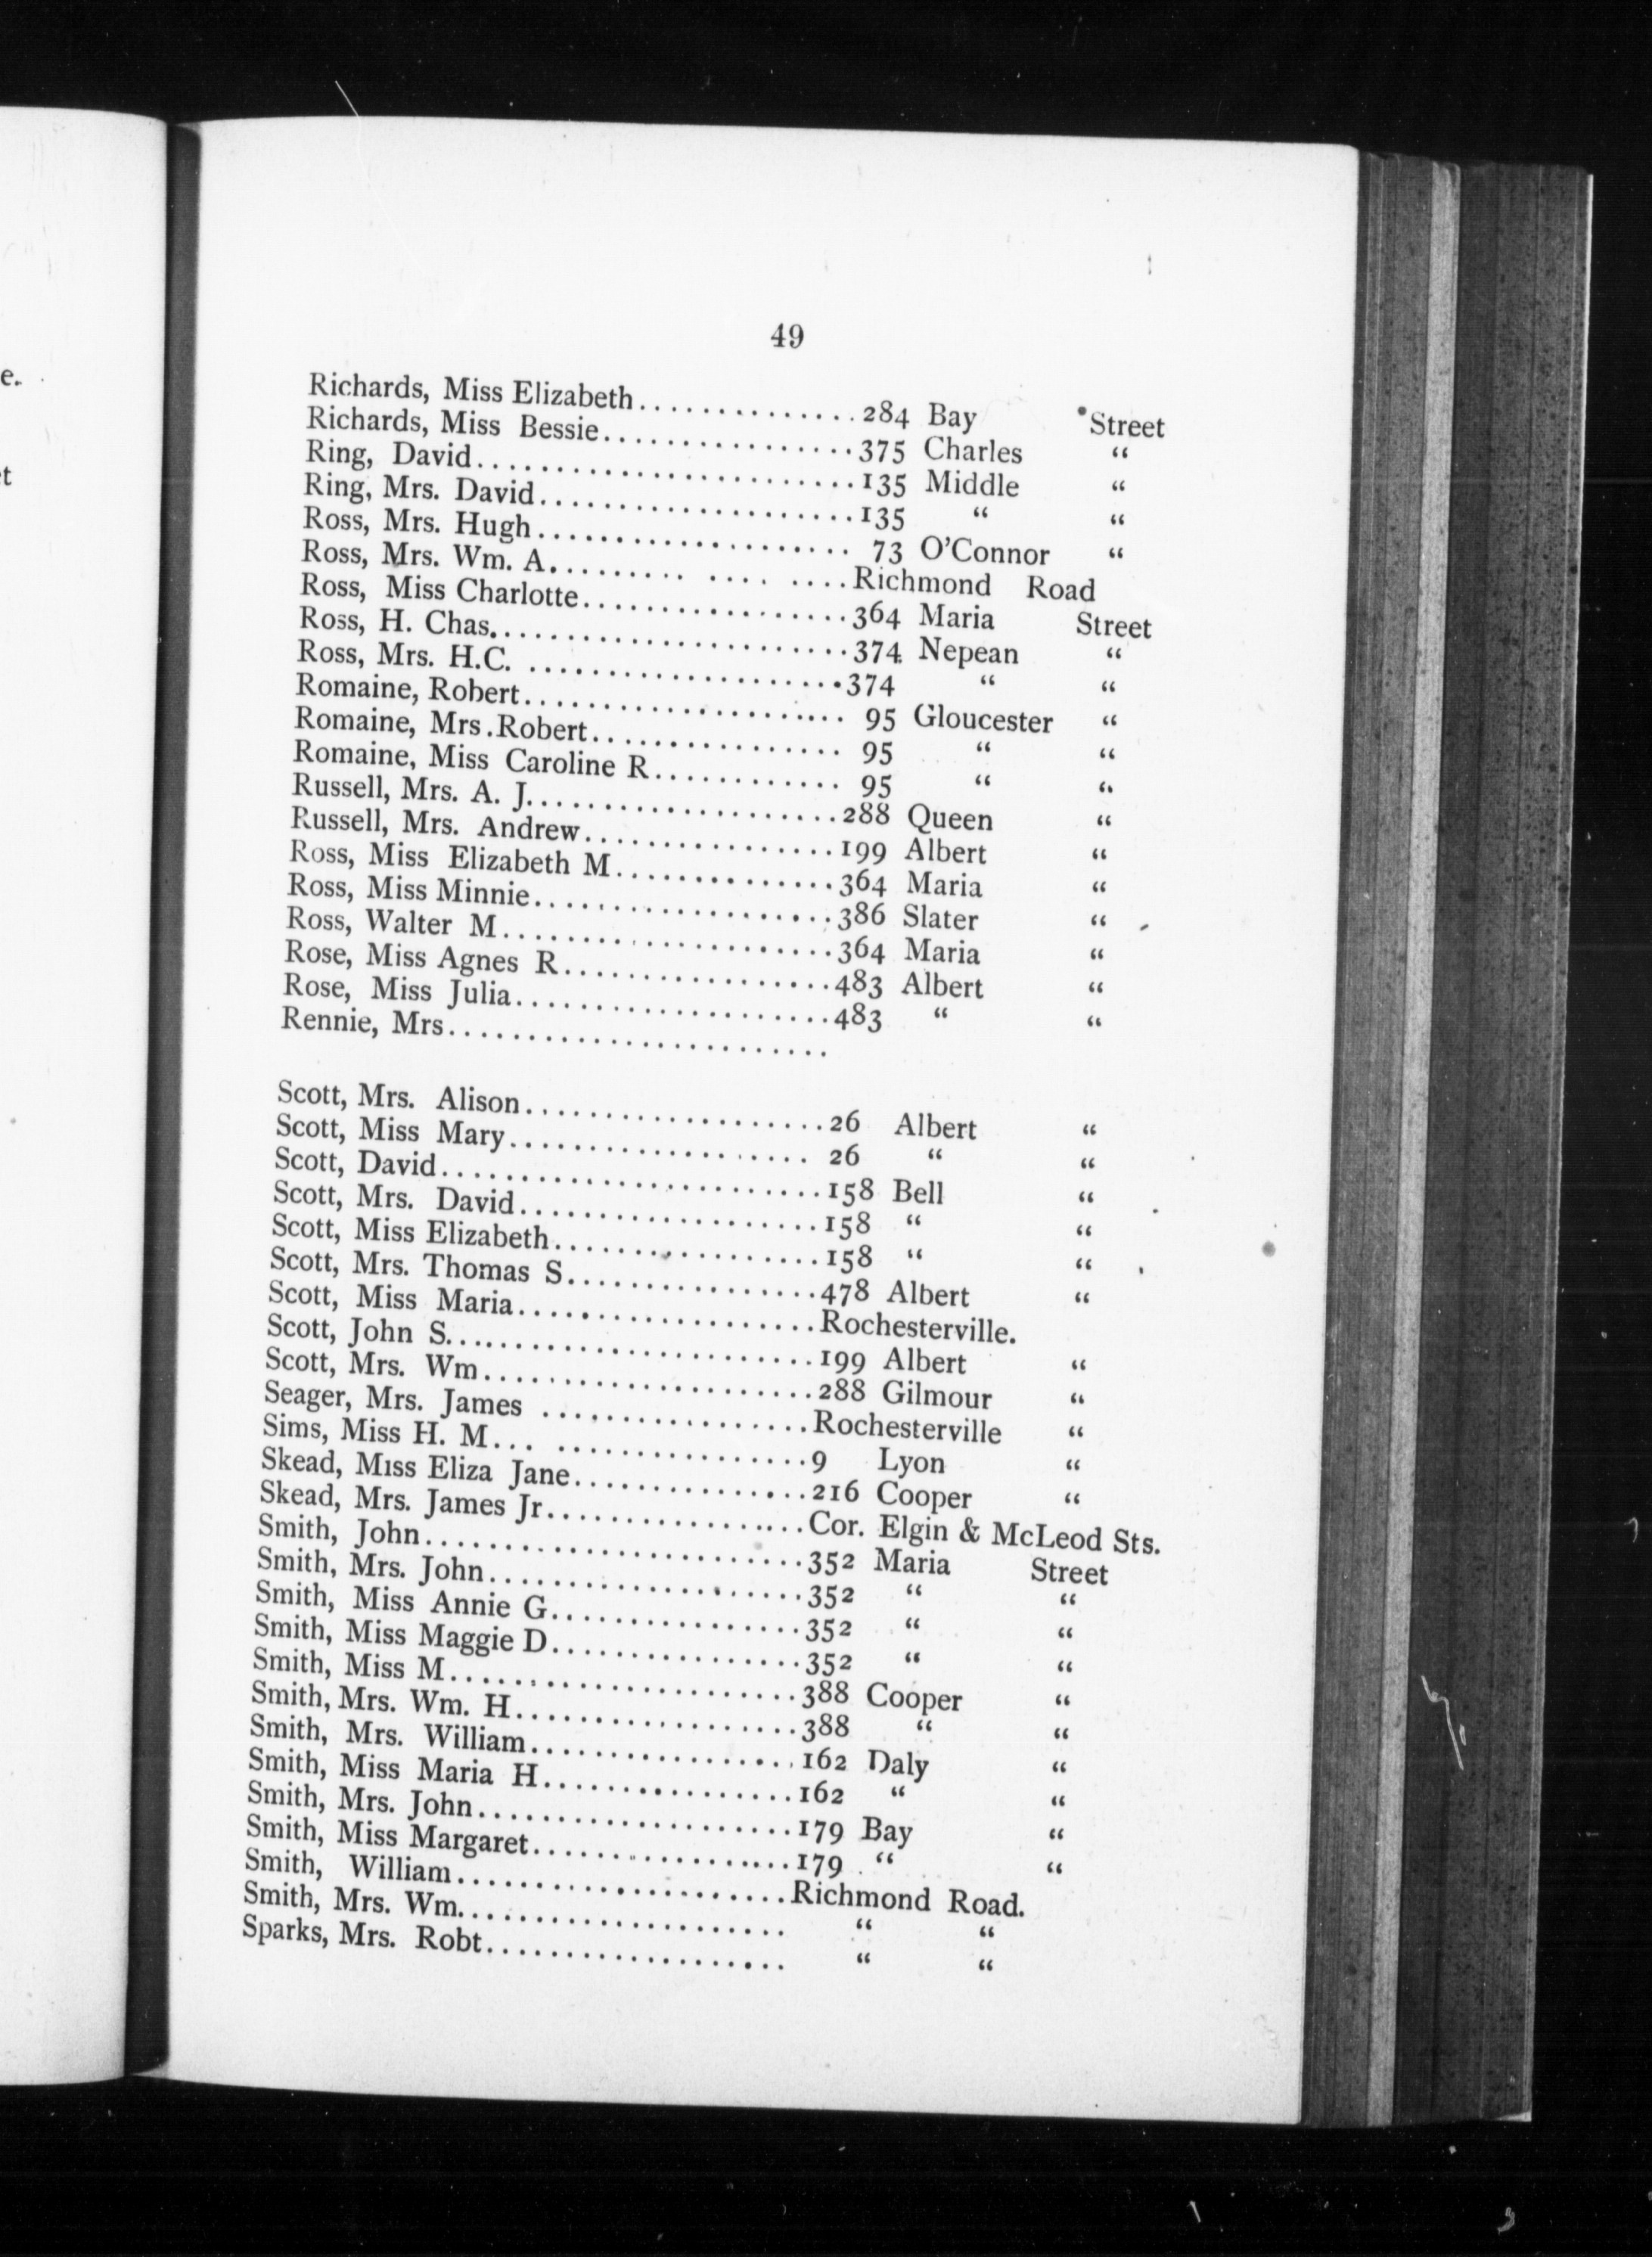 e.
et
49
Richards, Miss Elizabeth..............284 Bay Street
Richards, Miss Bessie................375 Charles “
Ring, David........................135 Middle “
Ring, Mrs. David....................135 “ “
Ross, Mrs. Hugh.................... 73 O’Connor “
Ross, Mrs. Wm. A......... .... ....Richmond Road
Ross, Miss Charlotte.................364 Maria Street
Ross, H. Chas.......................374 Nepean “
Ross, Mrs. H.C. ....................374 “ “
Romaine, Robert.................... 95 Gloucester “
Romaine, Mrs.Robert................ 95 “ “
Romaine, Miss Caroline R............ 95 “ “
Russell, Mrs. A. J....................288 Queen “
Russell, Mrs. Andrew................199 Albert “
Ross, Miss Elizabeth M..............364 Maria “
Ross, Miss Minnie...................386 Slater “
Ross, Walter M.....................364 Maria “
Rose, Miss Agnes R.................483 Albert “
Rose, Miss Julia....................483 “ “
Rennie, Mrs........................
Scott, Mrs. Alison...................26 Albert “
Scott, Miss Mary................... 26 “ “
Scott, David........................158 Bell “
Scott, Mrs. David...................158 “ “
Scott, Miss Elizabeth.................158 “ “
Scott, Mrs. Thomas S................478 Albert “
Scott, Miss Maria...................Rochesterville.
Scott, John S.......................199 Albert “
Scott, Mrs. Wm.....................288 Gilmour “
Seager, Mrs. James .................Rochesterville “
Sims, Miss H. M... ................9 Lyon “
Skead, Miss Eliza Jane...............216 Cooper “
Skead, Mrs. James Jr................Cor. Elgin & McLeod Sts.
Smith, John........................352 Maria Street
Smith, Mrs. John....................352 “ “
Smith, Miss Annie G................352 “ “
Smith, Miss Maggie D................352 “ “
Smith, Miss M......................388 Cooper “
Smith, Mrs. Wm. H..................388 “ “
Smith, Mrs. William.................162 Daly “
Smith, Miss Maria H................162 “ “
Smith, Mrs. John....................179 Bay “
Smith, Miss Margaret................179 “ “
Smith, William.....................Richmond Road.
Smith, Mrs. Wm..................... “ “
Sparks, Mrs. Robt................... “ “